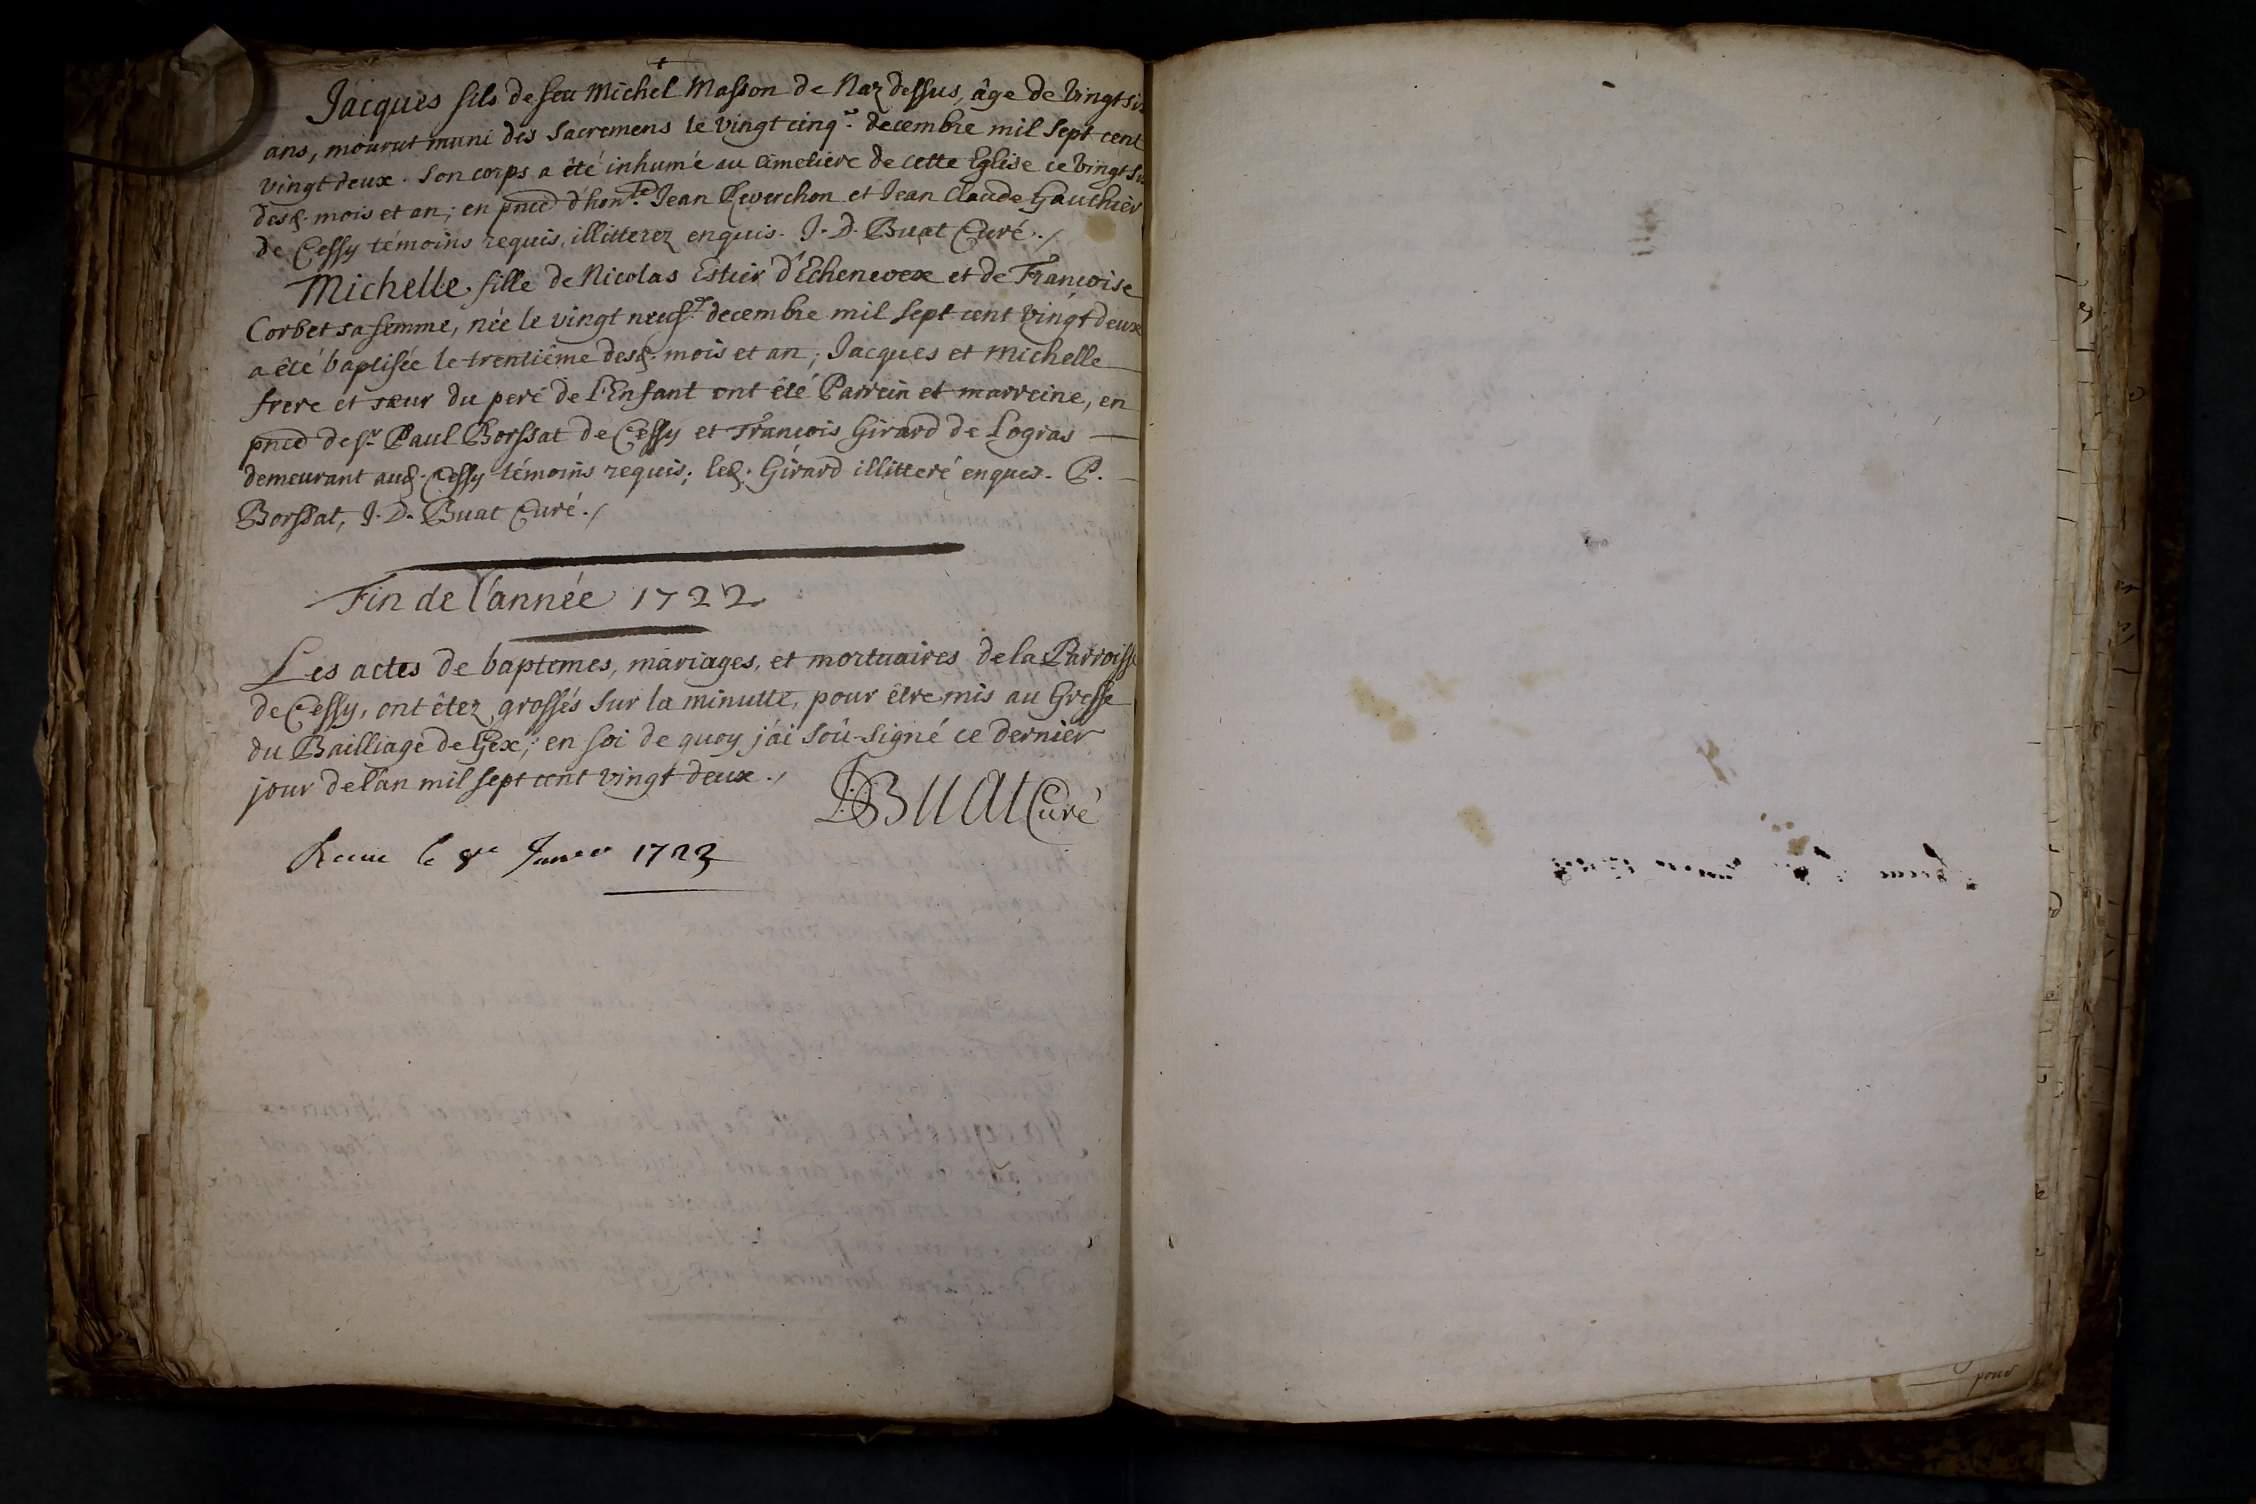 Jacques fils de feu Michel Masson de Naz dessus, âge de vingt six
ans, mourut muni des Sacremens le vingt cinq.e decembre mil sept cent
vingt deux. Son corps a été inhumé au cimetiere de cette Eglise ce vingt six
desd. mois et an; en pnce d'hon.te Jean Reverchon et Jean Claude Gauthier
de Cessy témoins requis, illitterez enquis. J. D. Buat Curé./
Michelle, fille de Nicolas Estier d'Echenevex et de Françoise
Corbet sa femme, née le vingt neuf.e decembre mil sept cent vingt deux
a été baptisée le trentième desd. mois et an; Jacques et Michelle
frere et sœur du pere de l'Enfant ont été Parrein et marreine, en
pnce de sr. Paul Borssat de Cessy et François Girard de Logras
demeurant aud. Cessy témoins requis; led. Girard illitteré enquis. P.
Borssat, J. D. Buat Curé./
Fin de l'année 1722
Les actes de baptemes, mariages, et mortuaires de la Parroisse
de Cessy, ont êtez grossés sur la minutte, pour être mis au Greffe
du Bailliage de Gex; en foi de quoy j'ai soû-signé ce dernier
jour de l'an mil sept cent vingt deux./
JD Buat Curé
le 8e Janvier 1723
pour